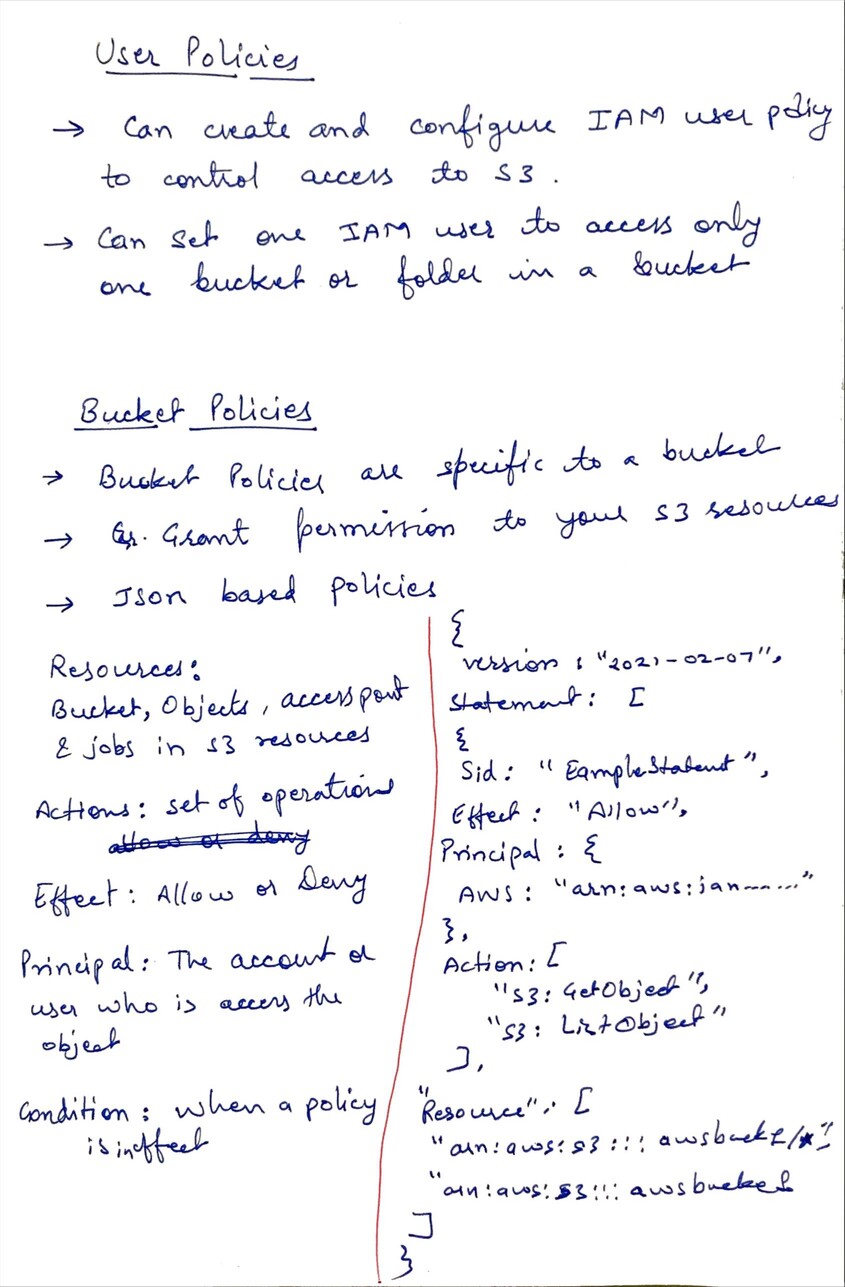 User Policies
→ Can create and configure IAM user policy
to control access to S3.
→ Can set one IAM user to access only
one bucket or folder in a bucket
Bucket Policies
→ Bucket Policies are specific to a bucket
→ Grant permission to your S3 resources
→ Json based policies
Resources:
Bucket, Objects, access point
& jobs in S3 resources
Actions: set of operations
allow or deny
Effect: Allow or Deny
Principal: The account or
user who is access the
object
Condition: when a policy
is in effect
{
version : "2021-02-07",
Statement: [
{
Sid: "EampleStatent",
Effect: "Allow",
Principal: {
AWS: "arn:aws:ian-----..."
},
Action: [
"s3: GetObject",
"s3: ListObject"
],
"Resource": [
"arn:aws:s3::: awsbucket/*"
"arn:aws:s3::: awsbucket
]
}